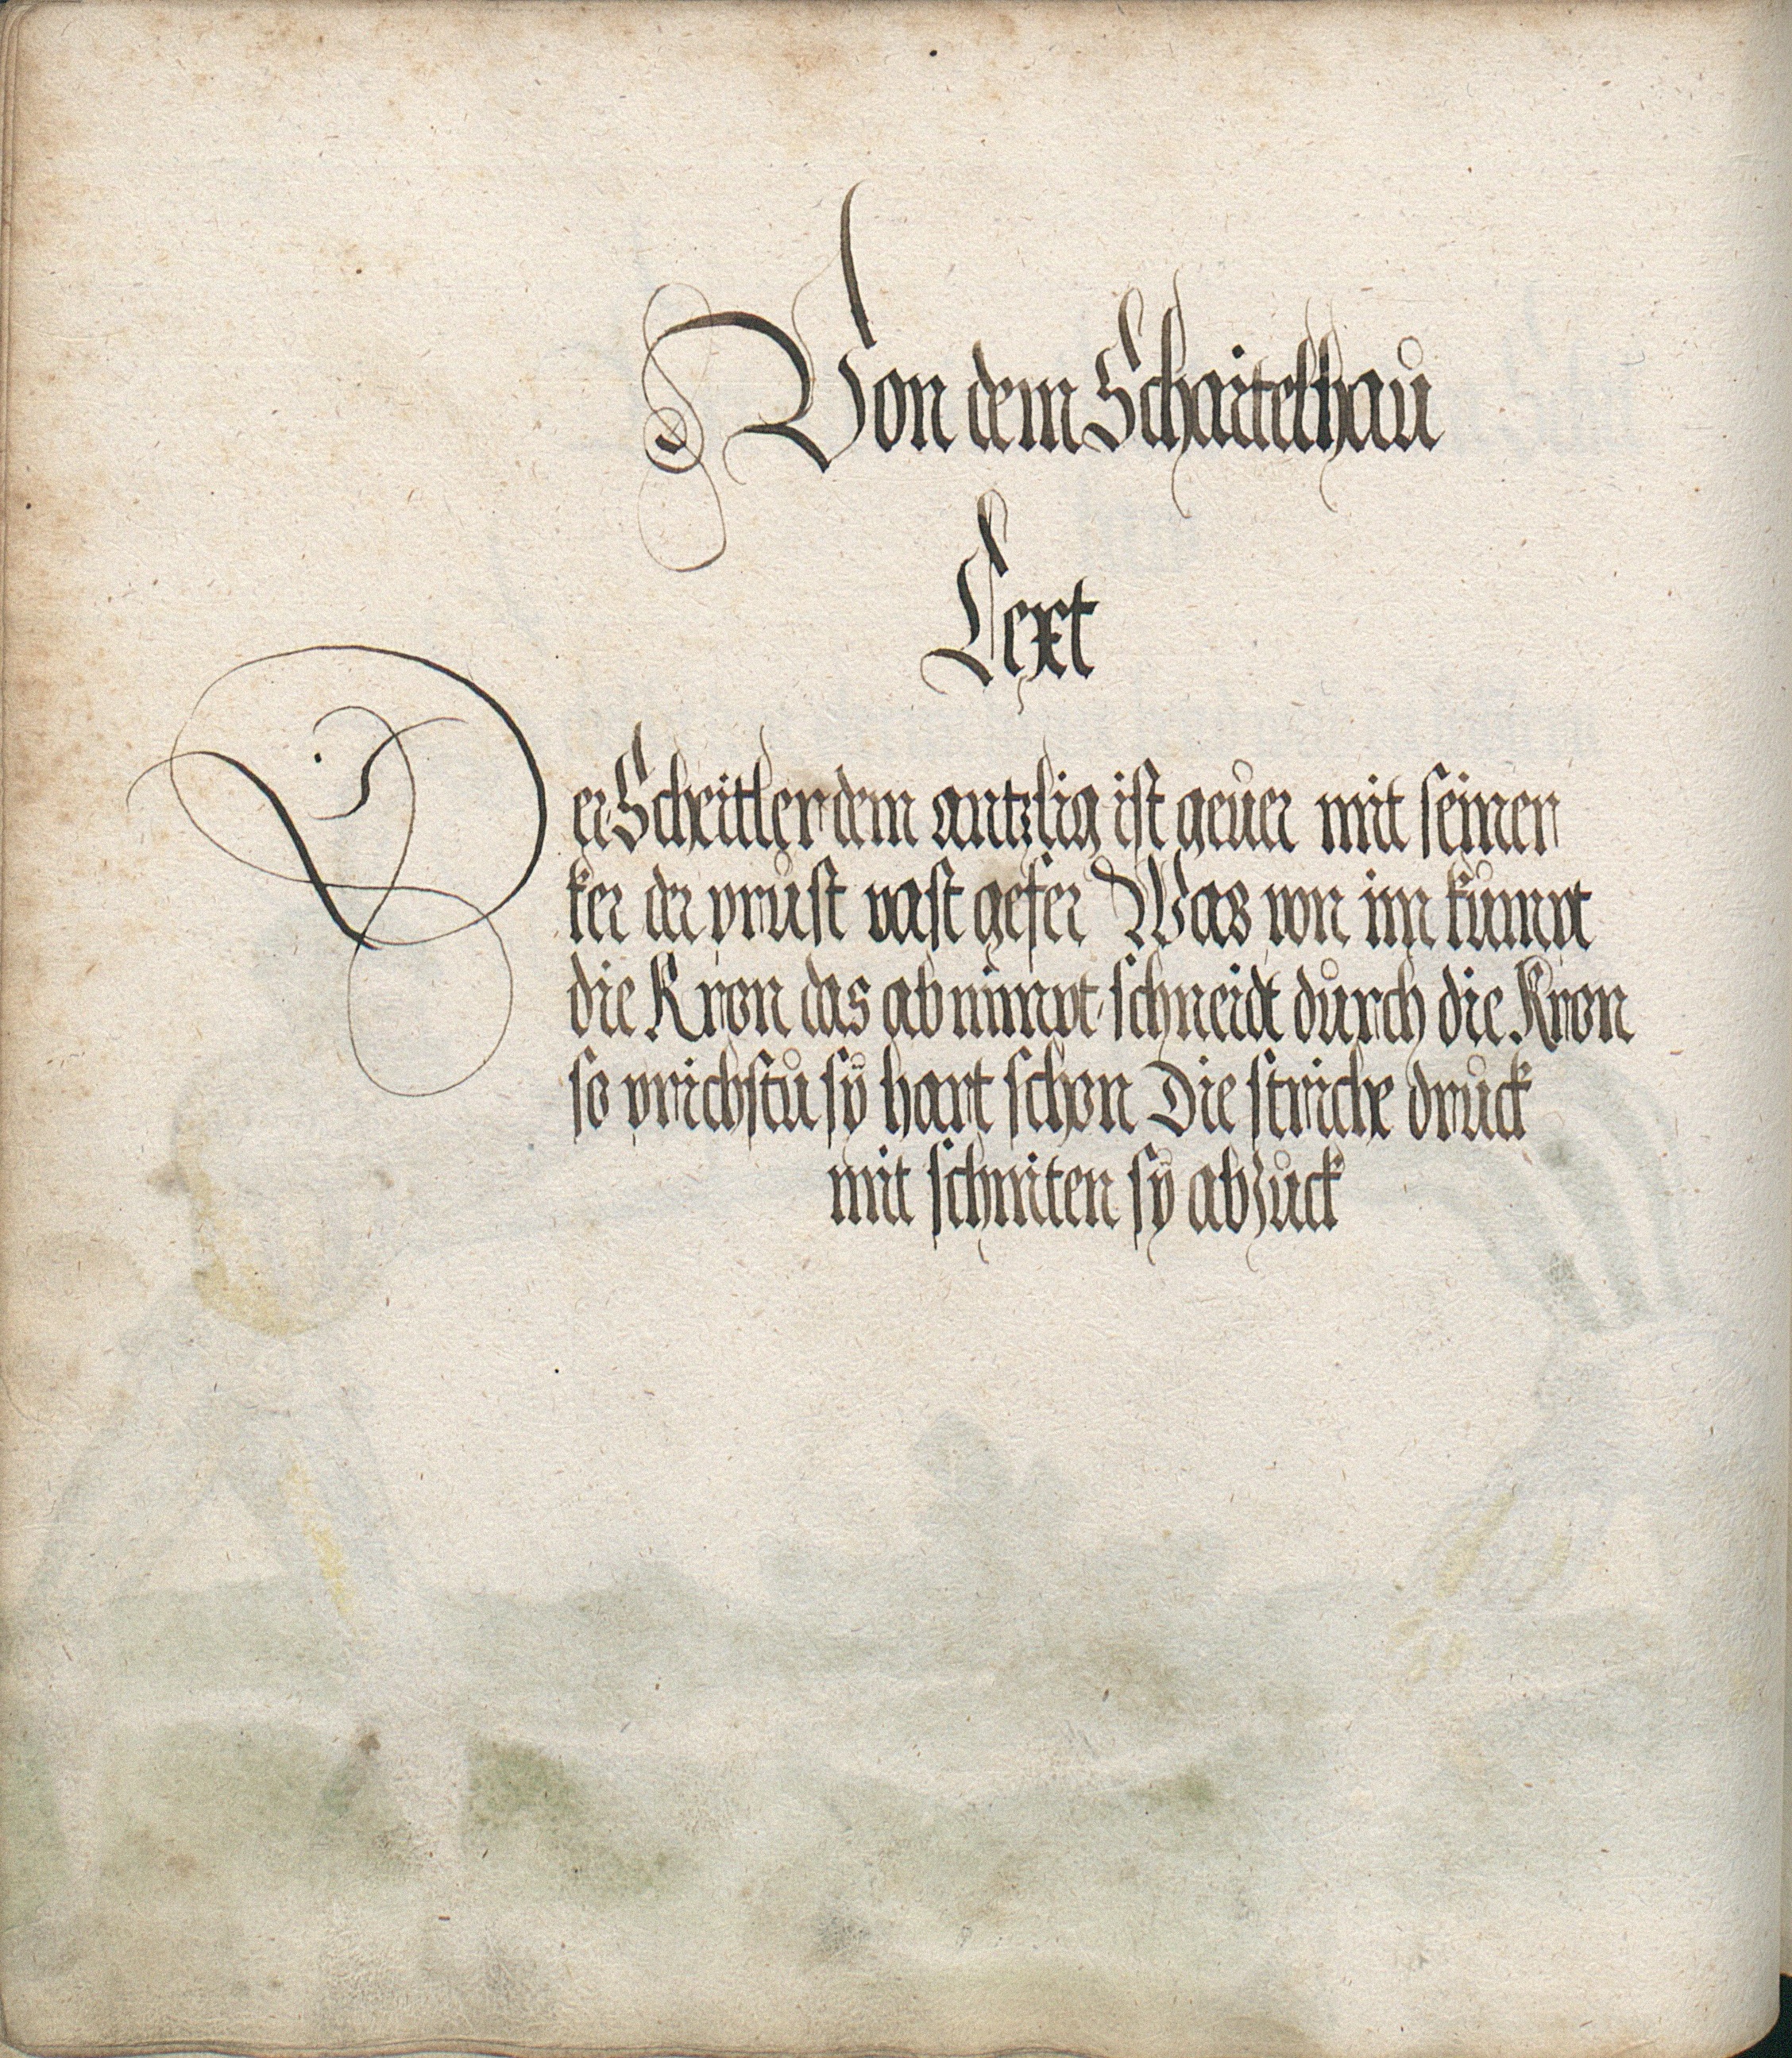 Von dem Schaitelhaů
Text
Der Scheitler dem antzlig ist geůer mit seiner
ker der průst vast gefer Was von im kůmpt
die Kron das ab nimpt schneidt důrch die Kron
so prichstů sÿ hart schon Die striche drůck
mit schniten sÿ abzůck